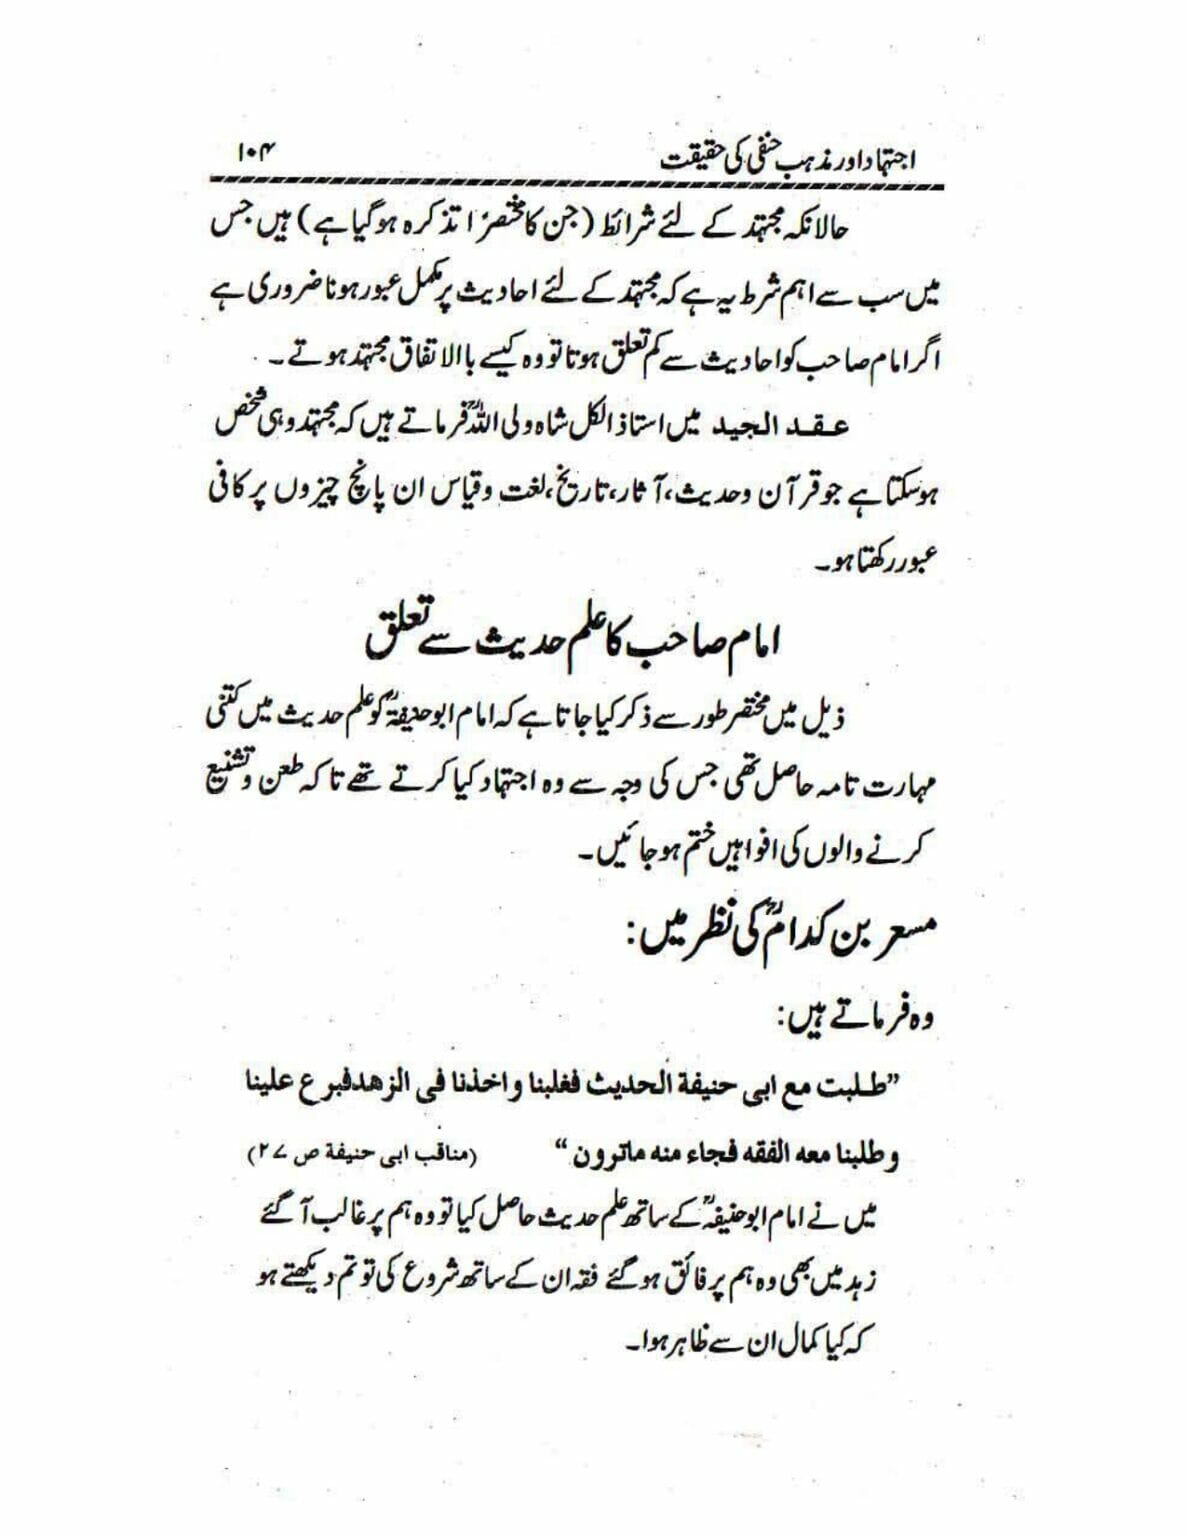 اجتہاد اور مذہب حنفی کی حقیقت ۱۰۴
حالانکہ مجتہد کے لئے شرائط (جن کا مختصرًا تذکرہ ہوگیا ہے) ہیں جس
میں سب سے اہم شرط یہ ہے کہ مجتہد کے لئے احادیث پر مکمل عبور ہونا ضروری ہے
اگر امام صاحب کو احادیث سے کم تعلق ہوتا تو وہ کیسے باالاتفاق مجتہد ہوتے۔
عقد الجید میں استاذ الکل شاہ ولی اللہؒ فرماتے ہیں کہ مجتہد وہی شخص
ہوسکتا ہے جو قرآن وحدیث، آثار، تاریخ، لغت وقیاس ان پانچ چیزوں پر کافی
عبور رکھتا ہو۔
امام صاحب کا علم حدیث سے تعلق
ذیل میں مختصر طور سے ذکر کیا جاتا ہے کہ امام ابوحنیفہؒ کو علم حدیث میں کتنی
مہارت تامہ حاصل تھی جس کی وجہ سے وہ اجتہاد کیا کرتے تھے تاکہ طعن وتشنیع
کرنے والوں کی افواہیں ختم ہوجائیں۔
مسعر بن کدامؒ کی نظر میں:
وہ فرماتے ہیں:
”طلبت مع ابی حنیفة الحدیث فغلبنا واخذنا فی الزھد فبرع علینا
وطلبنا معه الفقه فجاء منه ماترون“ (مناقب ابی حنیفة ص ۲۷)
میں نے امام ابوحنیفہؒ کے ساتھ علم حدیث حاصل کیا تو وہ ہم پر غالب آگئے
زہد میں بھی وہ ہم پر فائق ہوگئے فقہ ان کے ساتھ شروع کی تو تم دیکھتے ہو
کہ کیا کمال ان سے ظاہر ہوا۔